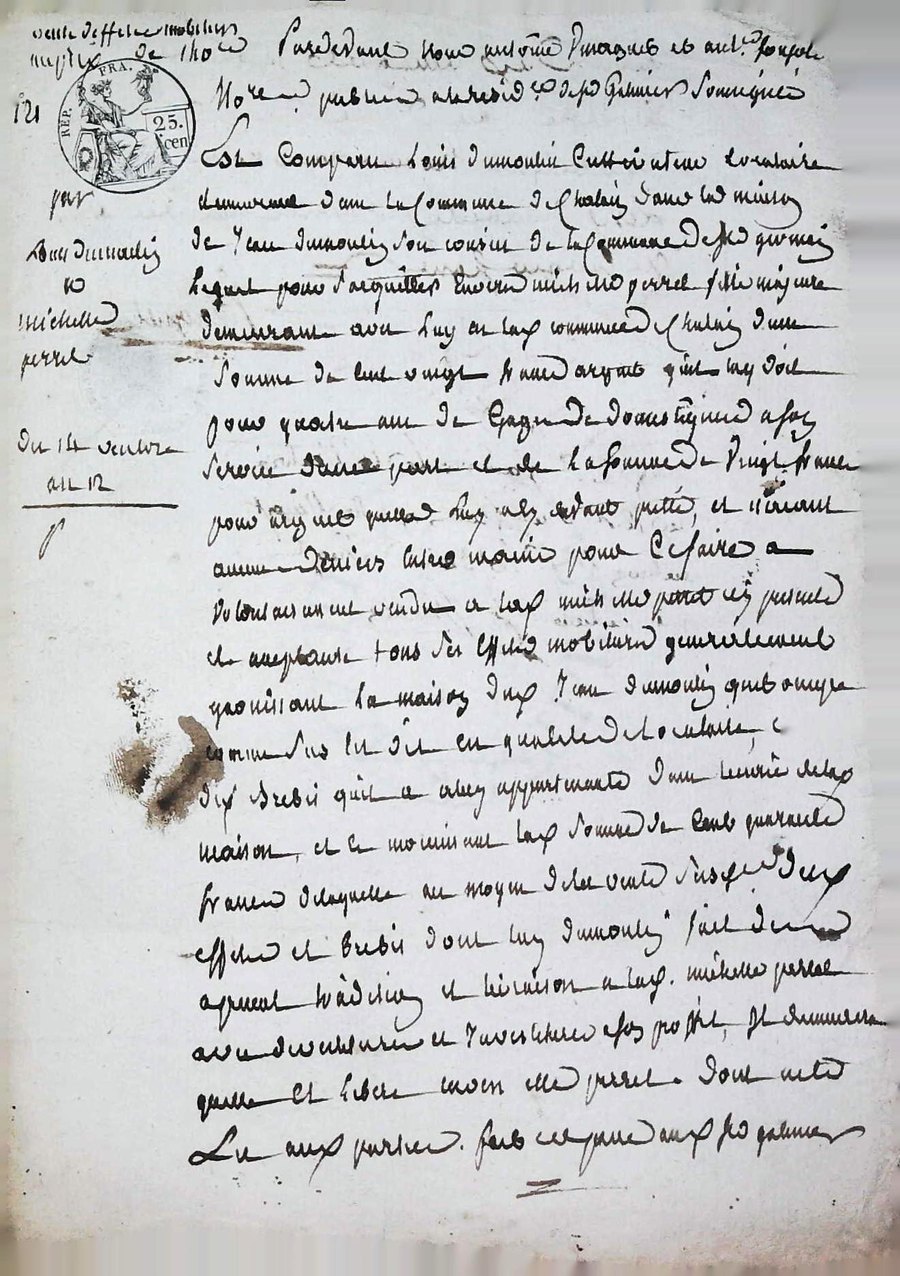 vente d'effets mobiliers
au prix de 140
121
REP. FRA.
25.
cen
par
Louis dumoulin
a
michelle
perret
du 14 ventose
an 12
Pardevant nous antoine et ant.
No.res publics a la resid.ce de Galmier Soussignés
Est Comparu Louis dumoulin Cultivateur locataire
demeurant dans la Commune de Chalain dans la maison
de Jean dumoulin son cousin de la Commune de
Lequel pour s'acquitter envers michelle perret fille majeure
demeurant avec luy en lad commune de Chalain d'une
Somme de Cent vingt francs argent qu'il luy doit
pour quatre ans de Gages de domestique a son
Service d'une part et de la somme de Vingt francs
pour argent quelle luy a cy devant pretté, et n'ayant
aucuns deniers entre mains pour Ce faire a
volontairement vendu a lad michelle perret icy presente
et acceptante tous ses Effets mobiliers generalement
garnissant la maison dud Jean dumoulin quil occupe
comme sus est dit en qualité de locataire,
dix brebis quil a appartenants dans l'ecurie de lad
maison, et ce moyennant lad Somme de Cent quarante
francs de laquelle au moyen de la vente dud
effets et brebis dont luy dumoulin fait
agrement tradition et livraison a lad. michelle perret
avec et Investiture a son profit, Il demeurera
quitte Et libere envers elle perret. dont acte
Lu aux parties. fait et passé aud galmier